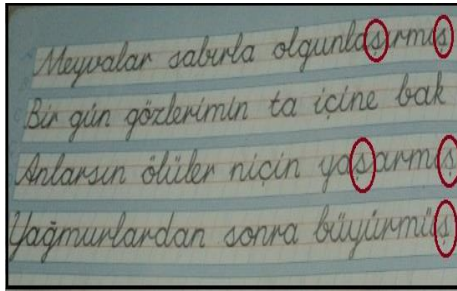 Meyvalar sabırla olgunlaşırmış
Bir gün gözlerimin ta içine bak
Anlarsın ölüler niçin yaşarmış
Yağmurlardan sonra büyürmüş